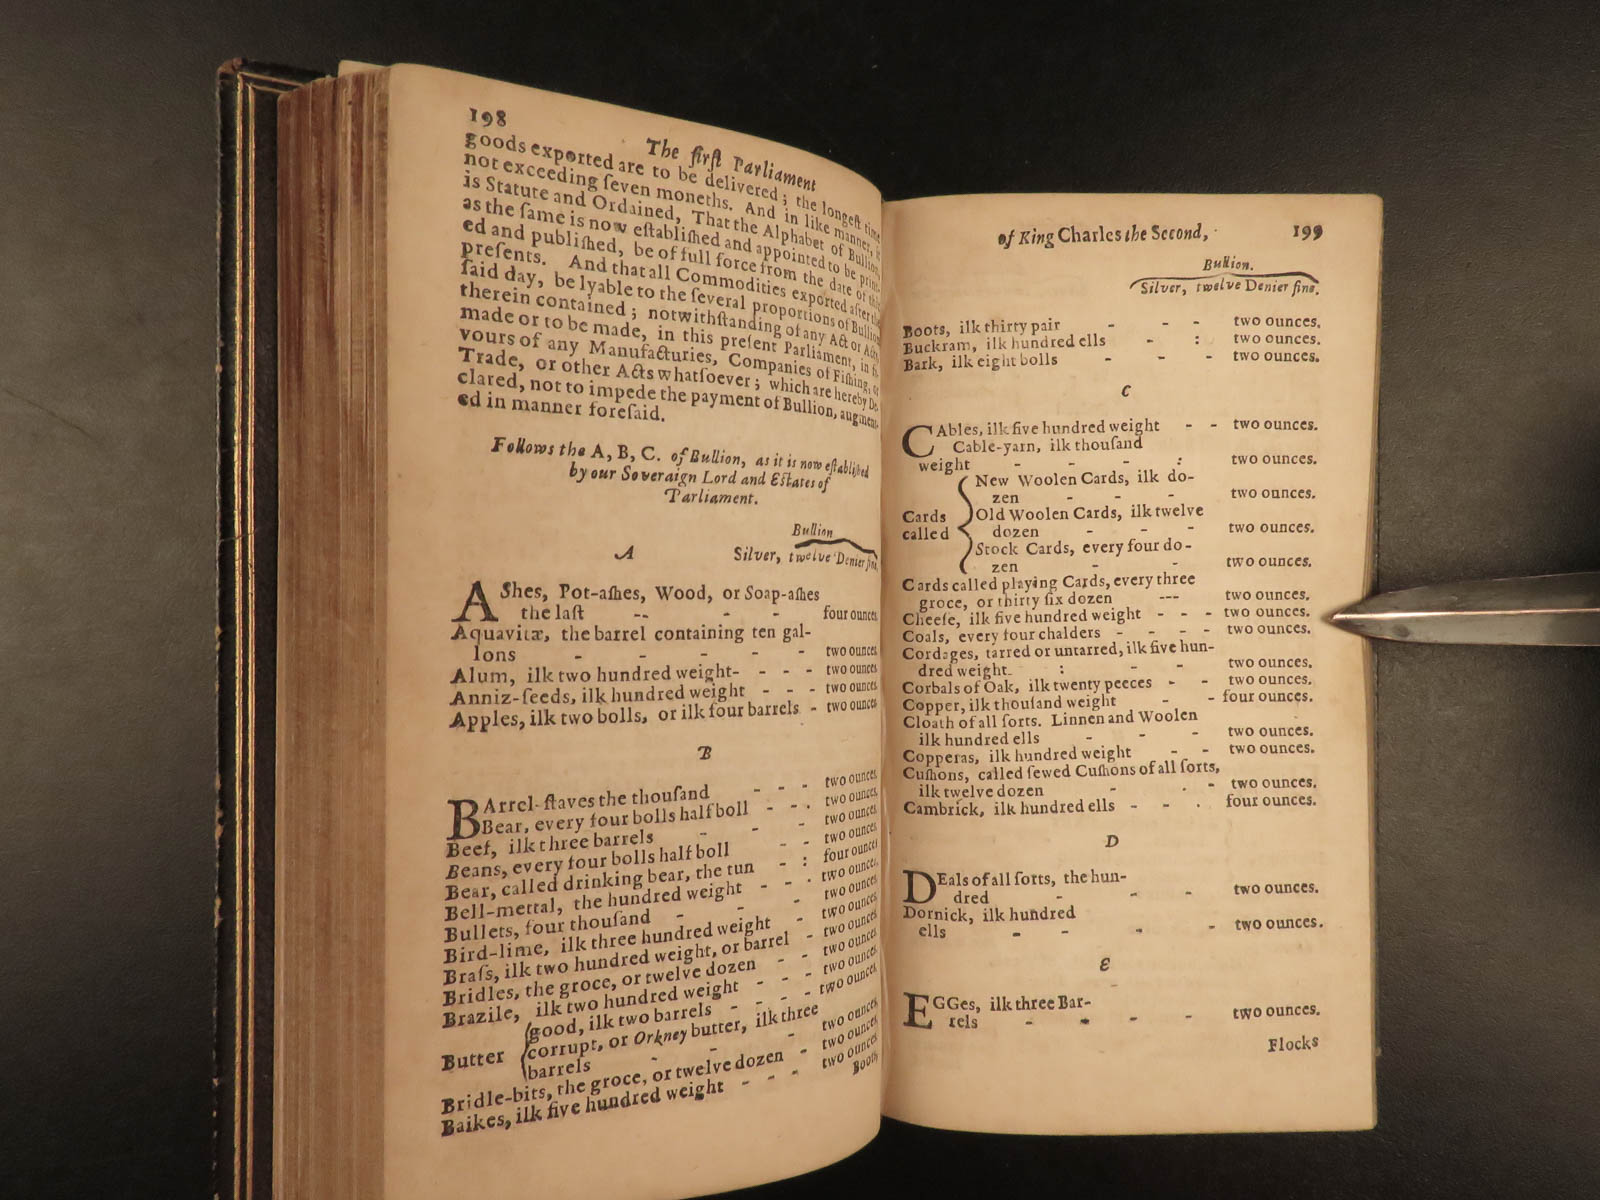 198
The first Parliament
goods exported are to be delivered; the longest time
not exceeding seven moneths. And in like manner, it
is Statute and Ordained, That the Alphabet of Bullion,
as the same is now established and appointed to be print-
ed and published, be of full force from the date of this
presents. And that all Commodities exported after the
said day, be lyable to the several proportions of Bullion
therein contained; notwithstanding of any Act or Acts,
made or to be made, in this present Parliament, in fa-
vours of any Manufacturies, Companies of Fishing, or
Trade, or other Acts whatsoever; which are hereby De-
clared, not to impede the payment of Bullion, augment-
ed in manner foresaid.
Follows the A, B, C. of Bullion, as it is now established
by our Soveraign Lord and Estates of
Parliament.
Bullion
A Silver, twelve Denier fine.
AShes, Pot-ashes, Wood, or Soap-ashes
the last -- - - four ounces.
Aquavitæ, the barrel containing ten gal-
lons - - - - - two ounces.
Alum, ilk two hundred weight- - - - two ounces.
Anniz-seeds, ilk hundred weight - - - two ounces.
Apples, ilk two bolls, or ilk four barrels - two ounces.
B
BArrel-staves the thousand - - - two ounces.
Bear, every four bolls half boll - - - two ounces.
Beef, ilk three barrels - - - two ounces.
Beans, every four bolls half boll - - two ounces.
Bear, called drinking bear, the tun - : four ounces.
Bell-mettal, the hundred weight - - - two ounces.
Bullets, four thousand - - - two ounces.
Bird-lime, ilk three hundred weight - two ounces.
Brass, ilk two hundred weight, or barrel - two ounces.
Bridles, the groce, or twelve dozen - - two ounces.
Brazile, ilk two hundred weight - - - two ounces.
good, ilk two barrels - - - - two ounces.
Butter corrupt, or Orkney butter, ilk three
barrels - - - two ounces.
Bridle-bits, the groce, or twelve dozen - two ounces.
Baikes, ilk five hundred weight - - - two ounces.
Boots,
of King Charles the Second, 199
Bullion.
Silver, twelve Denier fine.
Boots, ilk thirty pair - - - two ounces.
Buckram, ilk hundred ells - : two ounces.
Bark, ilk eight bolls - - - two ounces.
C
CAbles, ilk five hundred weight - - two ounces.
Cable-yarn, ilk thousand
weight - - - : two ounces.
New Woolen Cards, ilk do-
zen - - - two ounces.
Cards Old Woolen Cards, ilk twelve
called dozen - - - two ounces.
Stock Cards, every four do-
zen - - two ounces.
Cards called playing Cards, every three
groce, or thirty six dozen --- two ounces.
Cheese, ilk five hundred weight - - - two ounces.
Coals, every four chalders - - - - two ounces.
Cordages, tarred or untarred, ilk five hun-
dred weight. : - - two ounces.
Corbals of Oak, ilk twenty peeces - - two ounces.
Copper, ilk thousand weight - - four ounces.
Cloath of all sorts. Linnen and Woolen
ilk hundred ells - - - two ounces.
Copperas, ilk hundred weight - - two ounces.
Cushons, called sewed Cushons of all sorts,
ilk twelve dozen - - - two ounces.
Cambrick, ilk hundred ells - - . four ounces.
D
DEals of all sorts, the hun-
dred - - - two ounces.
Dornick, ilk hundred
ells - - - - two ounces.
E
EGGes, ilk three Bar-
rels - - - - two ounces.
Flocks